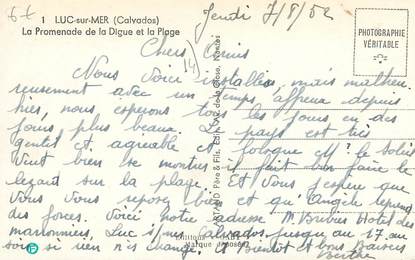 6 f
1 LUC-sur-MER (Calvados)
La Promenade de la Digue et la Plage
Jeudi 7/8/52
PHOTOGRAPHIE
VÉRITABLE
Chers Amis
Nous voici installés, mais malheu
reusement avec un temps affreux depuis
hier, nous esperons tous les jours en des
jours plus beaux. Le pays est très
gentil et agreable et Pologne. Mr le Soleil
veut bien se montrer il fait bon faire le
lezard sur la plage. Et Vous j'espere que
Vous Vous reposez bien et qu'Angèle reprend
des forces. Voici notre adresse M. Hotel des
marronniers, Luc s/mer Calvados jusqu'au 17 au
soir si rien n'a changé. A Bientot et bons Baisers
Berthe